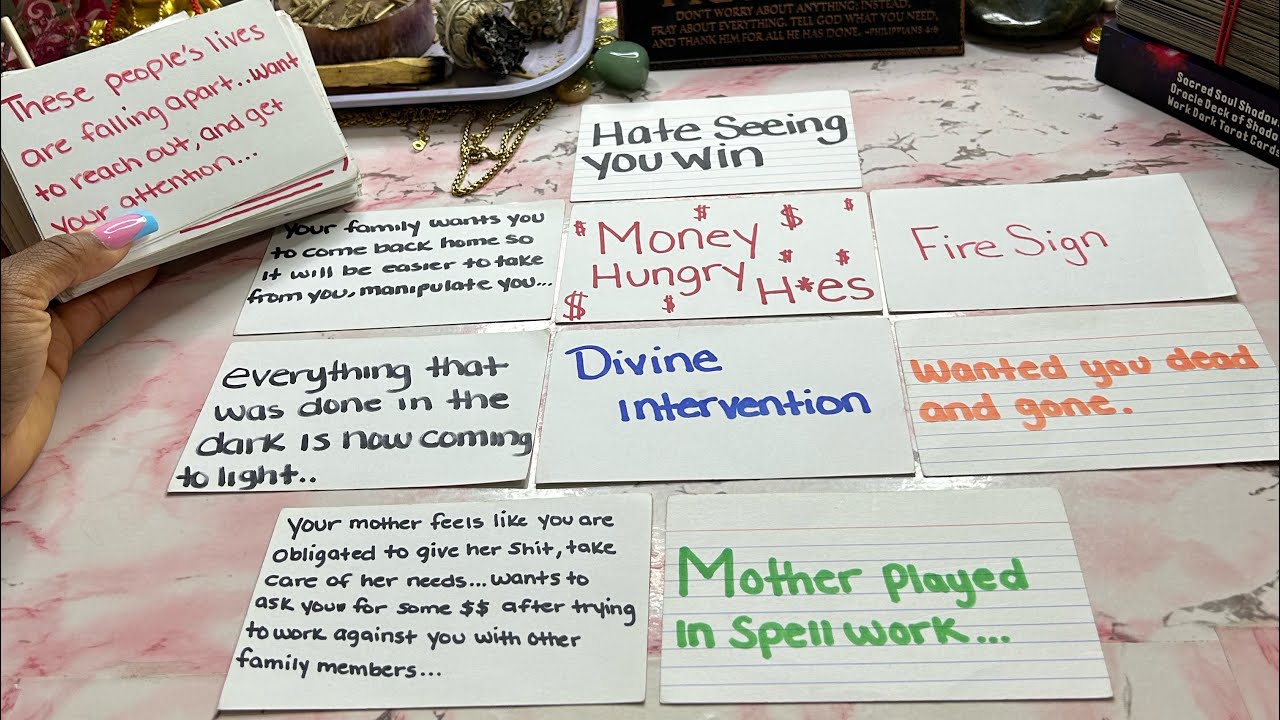 DON'T WORRY ABOUT ANYTHING; INSTEAD,
PRAY ABOUT EVERYTHING. TELL GOD WHAT YOU NEED,
AND THANK HIM FOR ALL HE HAS DONE. -PHILIPPIANS 4:6
Sacred Soul Shadow
Oracle Deck of Shadow
Work Dark Tarot Cards
These people's lives
are falling apart...want
to reach out, and get
your attention...
Hate Seeing
you win
your family wants you
to come back home so
it will be easier to take
from you, manipulate you...
$ $ $
$ Money
$ $
Hungry
$ $ H*es
Fire Sign
everything that
was done in the
dark is now coming
to light..
Divine
intervention
Wanted you dead
and gone.
Your mother feels like you are
obligated to give her shit, take
care of her needs...wants to
ask you for some $$ after trying
to work against you with other
family members...
Mother played
in Spell work...